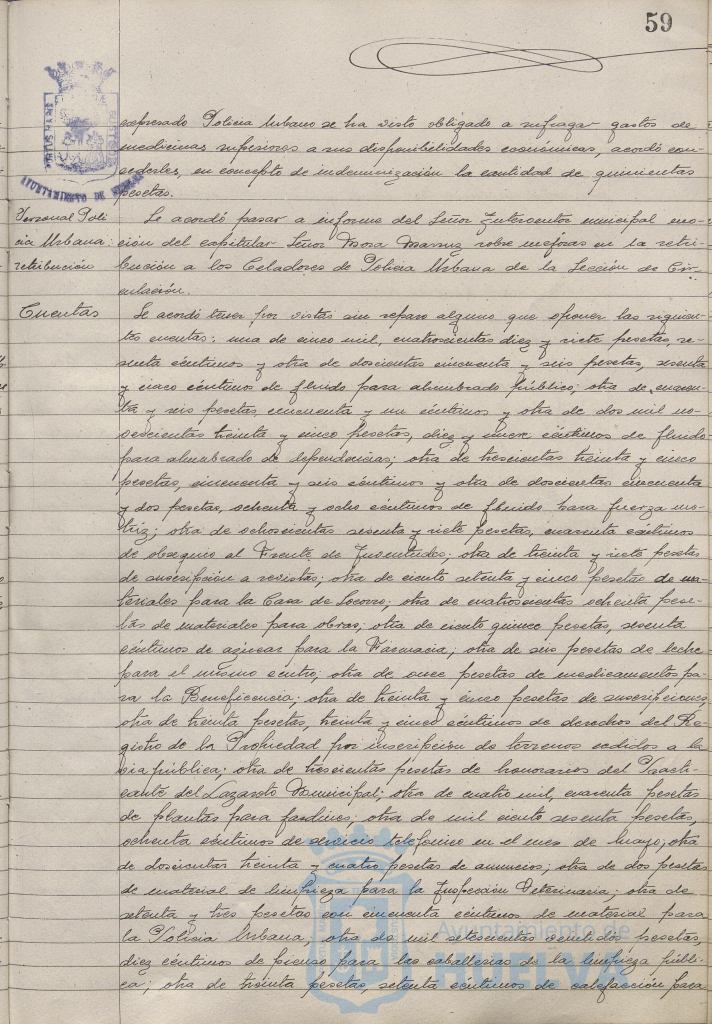 59
expresado Policia Urbano se ha visto obligado a sufragar gastos de
medicinas superiores a sus disponibilidades económicas, acordó con-
cederles, en concepto de indemnización la cantidad de quinientas
pesetas.
Personal Poli
cia Urbana:
retribución
Se acordó pasar a informe del Señor Interventor municipal mo-
ción del capitular Señor Mora sobre mejoras en la retri-
bución a los Celadores de Policia Urbana de la Sección de Cir-
culación.
Cuentas
Se acordó tener por vistas sin reparo alguno que oponer las siguien-
tes cuentas: una de cinco mil, cuatrocientas diez y siete pesetas, se-
senta céntimos y otra de doscientas cincuenta y seis pesetas, sesenta
y cinco céntimos de fluido para alumbrado público; otra de cuaren-
ta y seis pesetas, cincuenta y un céntimos y otra de dos mil no-
vescientas treinta y cinco pesetas, diez y nueve céntimos de fluido
para alumbrado de dependencias; otra de trescientas treinta y cinco
pesetas, cincuenta y seis céntimos y otra de doscientas cincuenta
y dos pesetas, ochenta y ocho céntimos de fluido para fuerza mo-
triz; otra de ochocientas sesenta y siete pesetas, cuarenta céntimos
de obsequio al Frente de Juventudes; otra de treinta y siete pesetas
de suscripción a revistas; otra de ciento setenta y cinco pesetas de ma-
teriales para la Casa de Socorro; otra de cuatrocientas ochenta pese-
tas de materiales para obras; otra de ciento quince pesetas, sesenta
céntimos de azúcar para la Farmacia; otra de seis pesetas de leche
para el mismo centro; otra de once pesetas de medicamentos pa-
ra la Beneficencia; otra de treinta y cinco pesetas de suscripciones,
otra de treinta pesetas, treinta y cinco céntimos de derechos del Re-
gistro de la Propiedad por inscripción de terrenos cedidos a la
via pública; otra de trescientas pesetas de honorarios del Practi-
cante del Lazareto Municipal; otra de cuatro mil, cuarenta pesetas
de plantas para jardines; otra de mil ciento sesenta pesetas,
ochenta céntimos de servicio telefónico en el mes de Mayo; otra
de doscientas treinta y cuatro pesetas de anuncios; otra de dos pesetas
de material de limpieza para la Inspección Veterinaria; otra de
setenta y tres pesetas con cincuenta céntimos de material para
la Policia Urbana, otra de mil setecientas veintidos pesetas,
diez céntimos de pienso para las caballerias de la limpieza públi-
ca; otra de treinta pesetas, setenta céntimos de calefacción para
AYUNTAMIENTO DE HUELVA
Ayuntamiento de
HUELVA